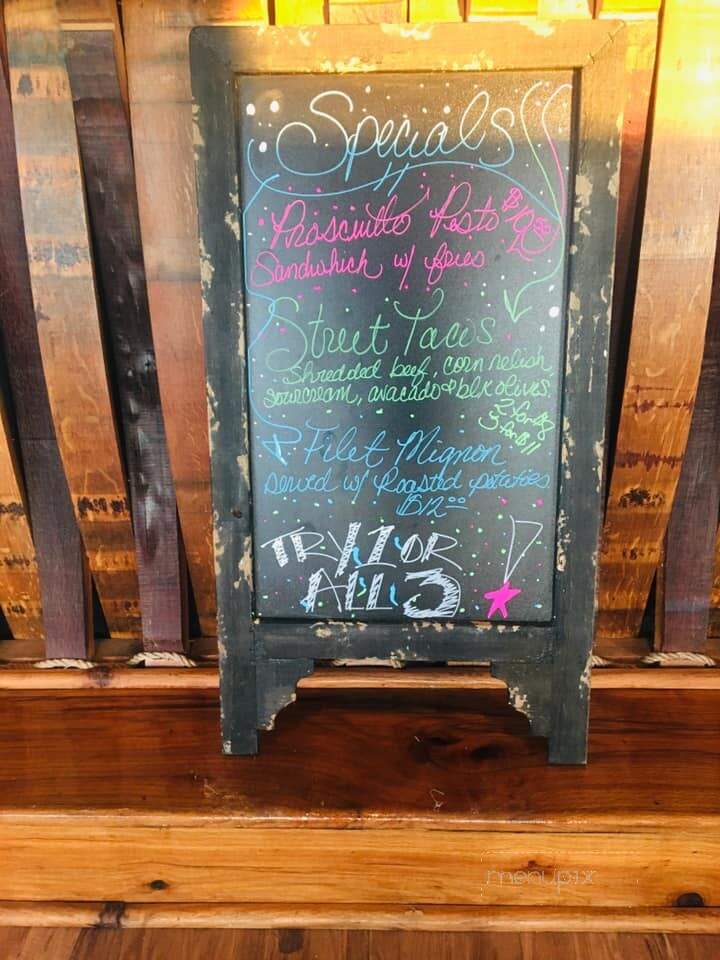 Specials
Proscuitto Pesto $10.50
Sandwhich w/ fries
Street Tacos
Shredded beef, corn relish,
sourcream, avacado & blk olives
2 for $8
3 for $11
Filet Mignon
served w/ Roasted potatoes
$12.00
TRY 1 OR
ALL 3!
menupix